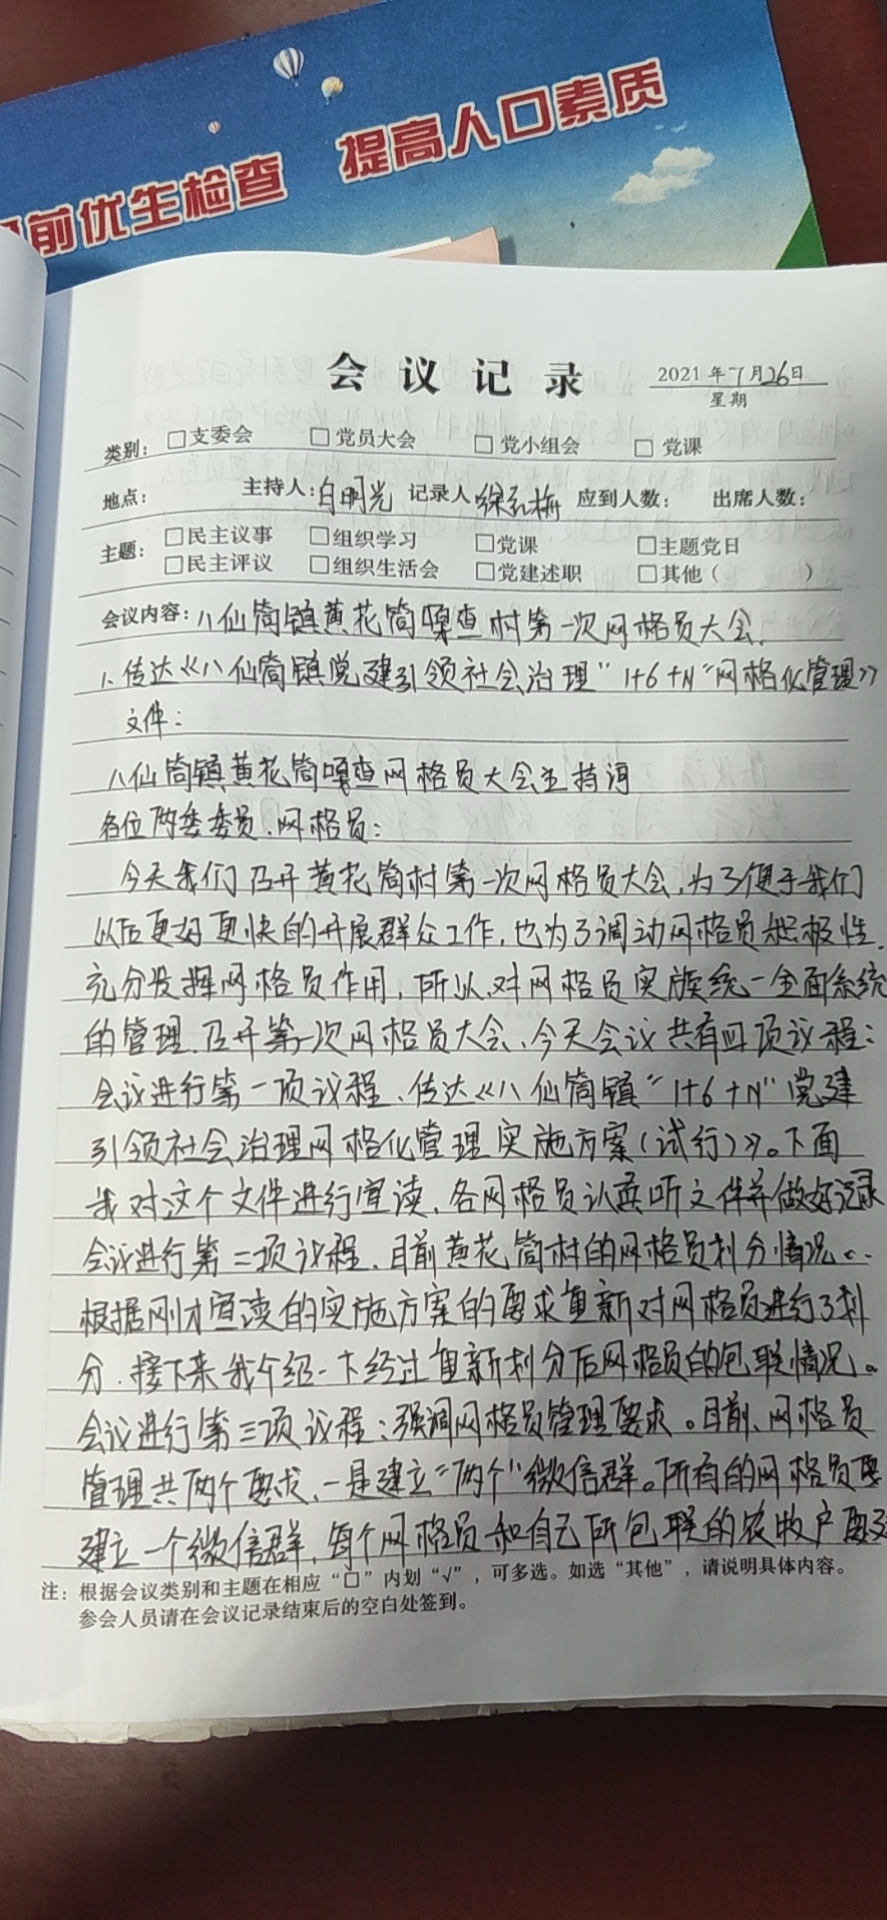 前优生检查 提高人口素质
会议记录
2021年7月26日
星期
类别：□支委会 □党员大会 □党小组会 □党课
地点： 主持人：白明光 记录人 应到人数： 出席人数：
主题：□民主议事 □组织学习 □党课 □主题党日
□民主评议 □组织生活会 □党建述职 □其他（ ）
会议内容：八仙筒镇黄花筒嘎查村第一次网格员大会.
1、传达《八仙筒镇党建引领社会治理“1+6+N”网格化管理》
文件：
八仙筒镇黄花筒嘎查网格员大会主持词
各位两委委员、网格员：
今天我们召开黄花筒村第一次网格员大会，为了便于我们
以后更好更快的开展群众工作，也为了调动网格员积极性，
充分发挥网格员作用，所以，对网格员实施统一全面系统
的管理、召开第一次网格员大会、今天会议共有四项议程：
会议进行第一项议程、传达《八仙筒镇“1+6+N”党建
引领社会治理网格化管理实施方案（试行）》。下面
我对这个文件进行宣读，各网格员认真听文件并做好记录
会议进行第二项议程、目前黄花筒村的网格员划分情况
根据刚才宣读的实施方案的要求重新对网格员进行了划
分，接下来我介绍一下经过重新划分后网格员的包联情况。
会议进行第三项议程：强调网格员管理要求。目前、网格员
管理共两个要求、一是建立“两个”微信群。所有的网格员要
建立一个微信群，每个网格员和自己所包联的农牧户要
注：根据会议类别和主题在相应“□”内划“√”，可多选。如选“其他”，请说明具体内容。
参会人员请在会议记录结束后的空白处签到。